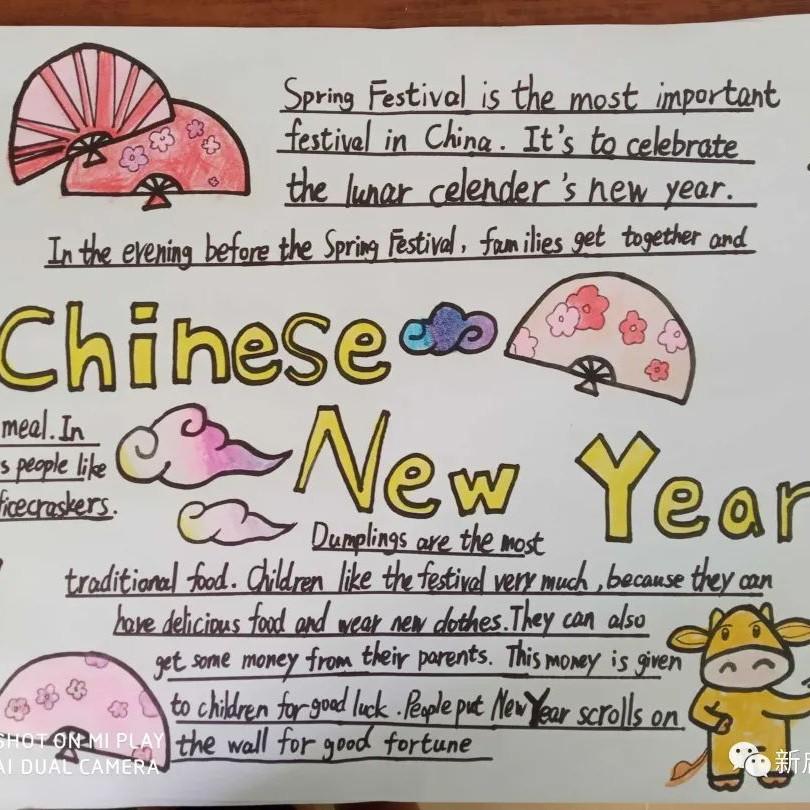 Spring Festival is the most important
festival in China. It's to celebrate
the lunar celender's new year.
In the evening before the Spring Festival, families get together and
Chinese
meal. In
s people like
ficecraskers.
New Year
Dumplings are the most
traditional food. Children like the festival very much, because they can
have delicious food and wear new clothes. They can also
get some money from their parents. This money is given
to children for good luck. People put New Year scrolls on
the wall for good fortune
SHOT ON MI PLAY
AI DUAL CAMERA